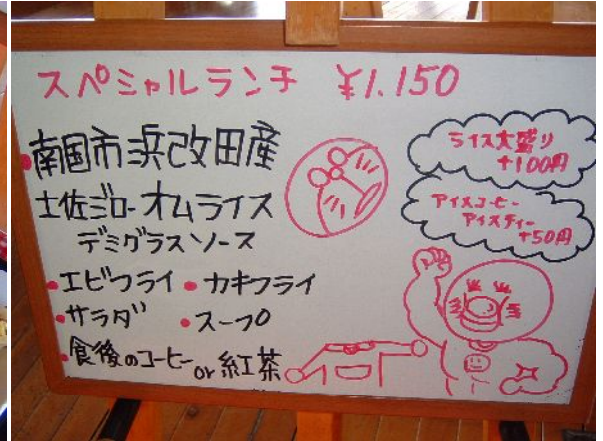 スペシャルランチ ¥1.150
・南国市浜改田産
土佐ジロー オムライス
デミグラスソース
・エビフライ ・カキフライ
・サラダ ・スープ
・食後のコーヒー or 紅茶
ライス大盛り
+100円
アイスコーヒー
アイスティー
+50円